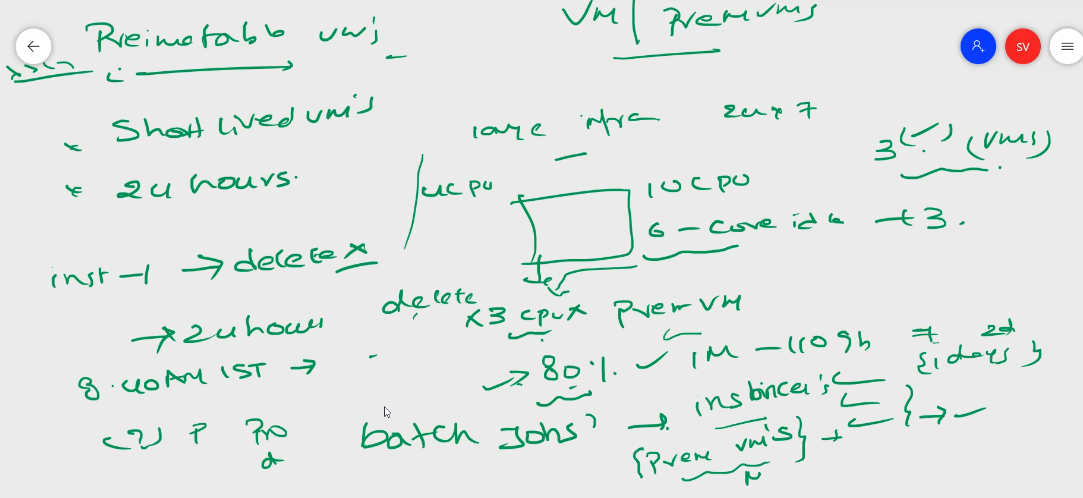 Preimetabls vm's
VM | Prem vms
SV
* Short lived vm's
large infra 24 x 7
3 (✓) (vms)
* 24 hours.
4 CPU
10 CPU
6 - core idle → 3.
inst -1 → delete x
delete
x 3 cpu x Prem VM
→ 24 hours
8.40 AM IST →
→ 80%. ✓ 1M - 110 gb
{1 days}
(?) P Pro
d
batch Jobs → instances
{Prem vm's} →
N